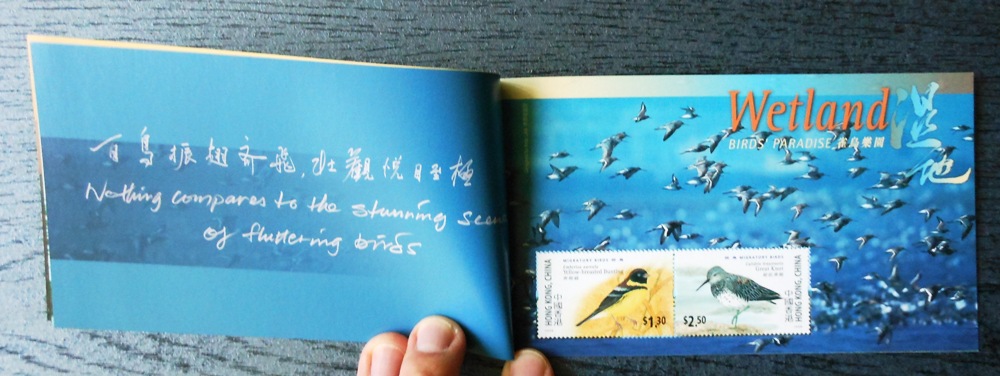 百鳥振翅齊飛,壯觀悅目至極
Nothing compares to the stunning scene
of fluttering birds
Wetland 濕地
BIRDS' PARADISE 雀鳥樂園
MIGRATORY BIRDS
Yellow-breasted Bunting
HONG KONG, CHINA
中國香港
$1.30
MIGRATORY BIRDS
Great Knot
HONG KONG, CHINA
中國香港
$2.50